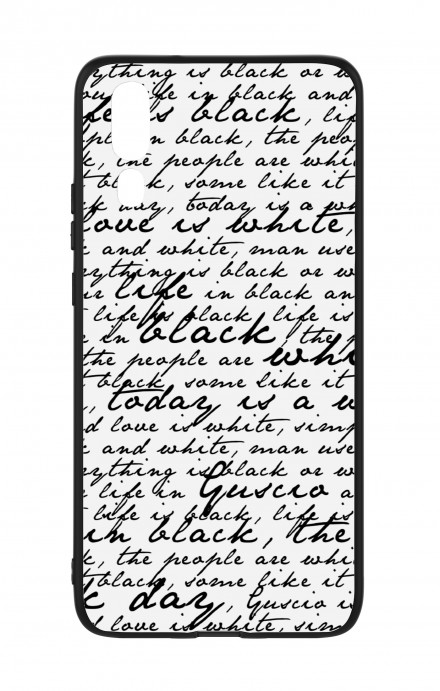 ything is black or w
life in black and
life is black, lif
n black, the peop
k, the people are whi
t black, some like it
k day, today is a wh
love is white,
and white, man use
ything is black or w
r life in black an
life is black, life is
in black, the p
the people are whi
t black, some like it
, today is a w
d love is white, simp
and white, man use
ything is black or w
life in Guscio a
life is black, life is
in black, the
k, the people are whi
t black, some like it
k day, Guscio i
d love is white, simp